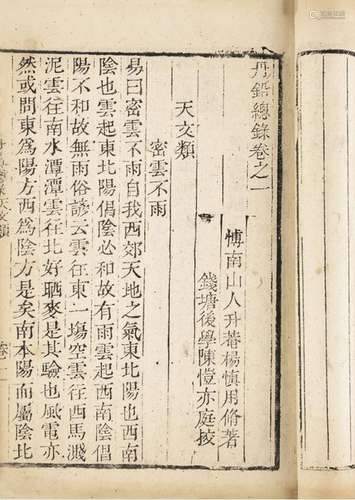 丹鉛總錄卷之一
博南山人升菴楊慎用脩著
錢塘後學陳愷亦庭挍
天文類
密雲不雨
易曰密雲不雨自我西郊天地之氣東北陽也西南
陰也雲起東北陽倡陰必和故有雨雲起西南陰倡
陽不和故無雨俗諺云雲往東一塲空雲往西馬濺
泥雲往南水潭潭雲往北好晒麥是其驗也風電亦
然或問東爲陽方西爲陰方是矣南本陽而屬陰北